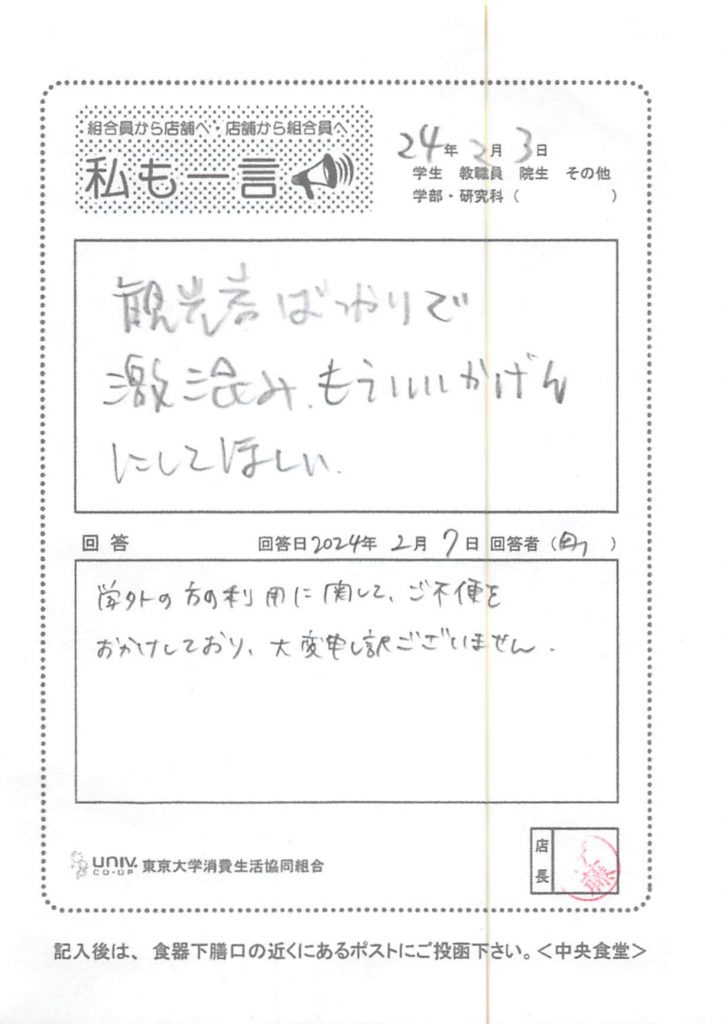 組合員から店舗へ・店舗から組合員へ
私も一言
24年 2月 3日
学生 教職員 院生 その他
学部・研究科（ ）
観光客ばっかりで
激混み、もういいかげん
にしてほしい.
回答 回答日2024年 2月 7日 回答者（ ）
学外の方の利用に関して、ご不便を
おかけしており、大変申し訳ございません.
店長
UNIV. CO-OP 東京大学消費生活協同組合
記入後は、食器下膳口の近くにあるポストにご投函下さい。＜中央食堂＞